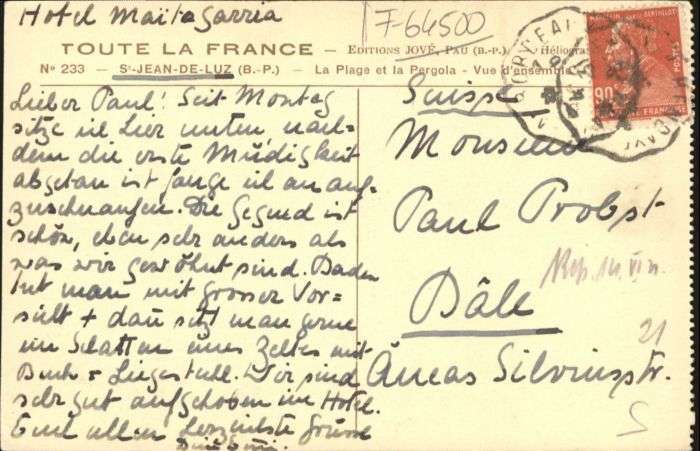 Hotel Maïtagarria
F-64500
TOUTE LA FRANCE — EDITIONS JOVÉ, PAU (B.-P.) Héliogra
N° 233 — ST-JEAN-DE-LUZ (B.-P.) — La Plage et la Pergola - Vue d'ensemble
Lieber Paul! Seit Montag
sitze ich hier unten, nach=
dem die erste Müdigkeit
abgetan ist fange ich an auf=
zuschnaufen. Die Gegend ist
schön, eben sehr anders als
was wir gewöhnt sind. Baden
tut man mit grosser Vor=
sicht + dañ sitzt man gerne
im Schatten eines Zeltes mit
Buch + Liegestuhl. Wir sind
sehr gut aufgehoben im Hotel.
Euch allen herzlichste Grüsse
Suisse
Monsieur
Paul Probst
Bâle
Äneas Silviusstr.
21
90